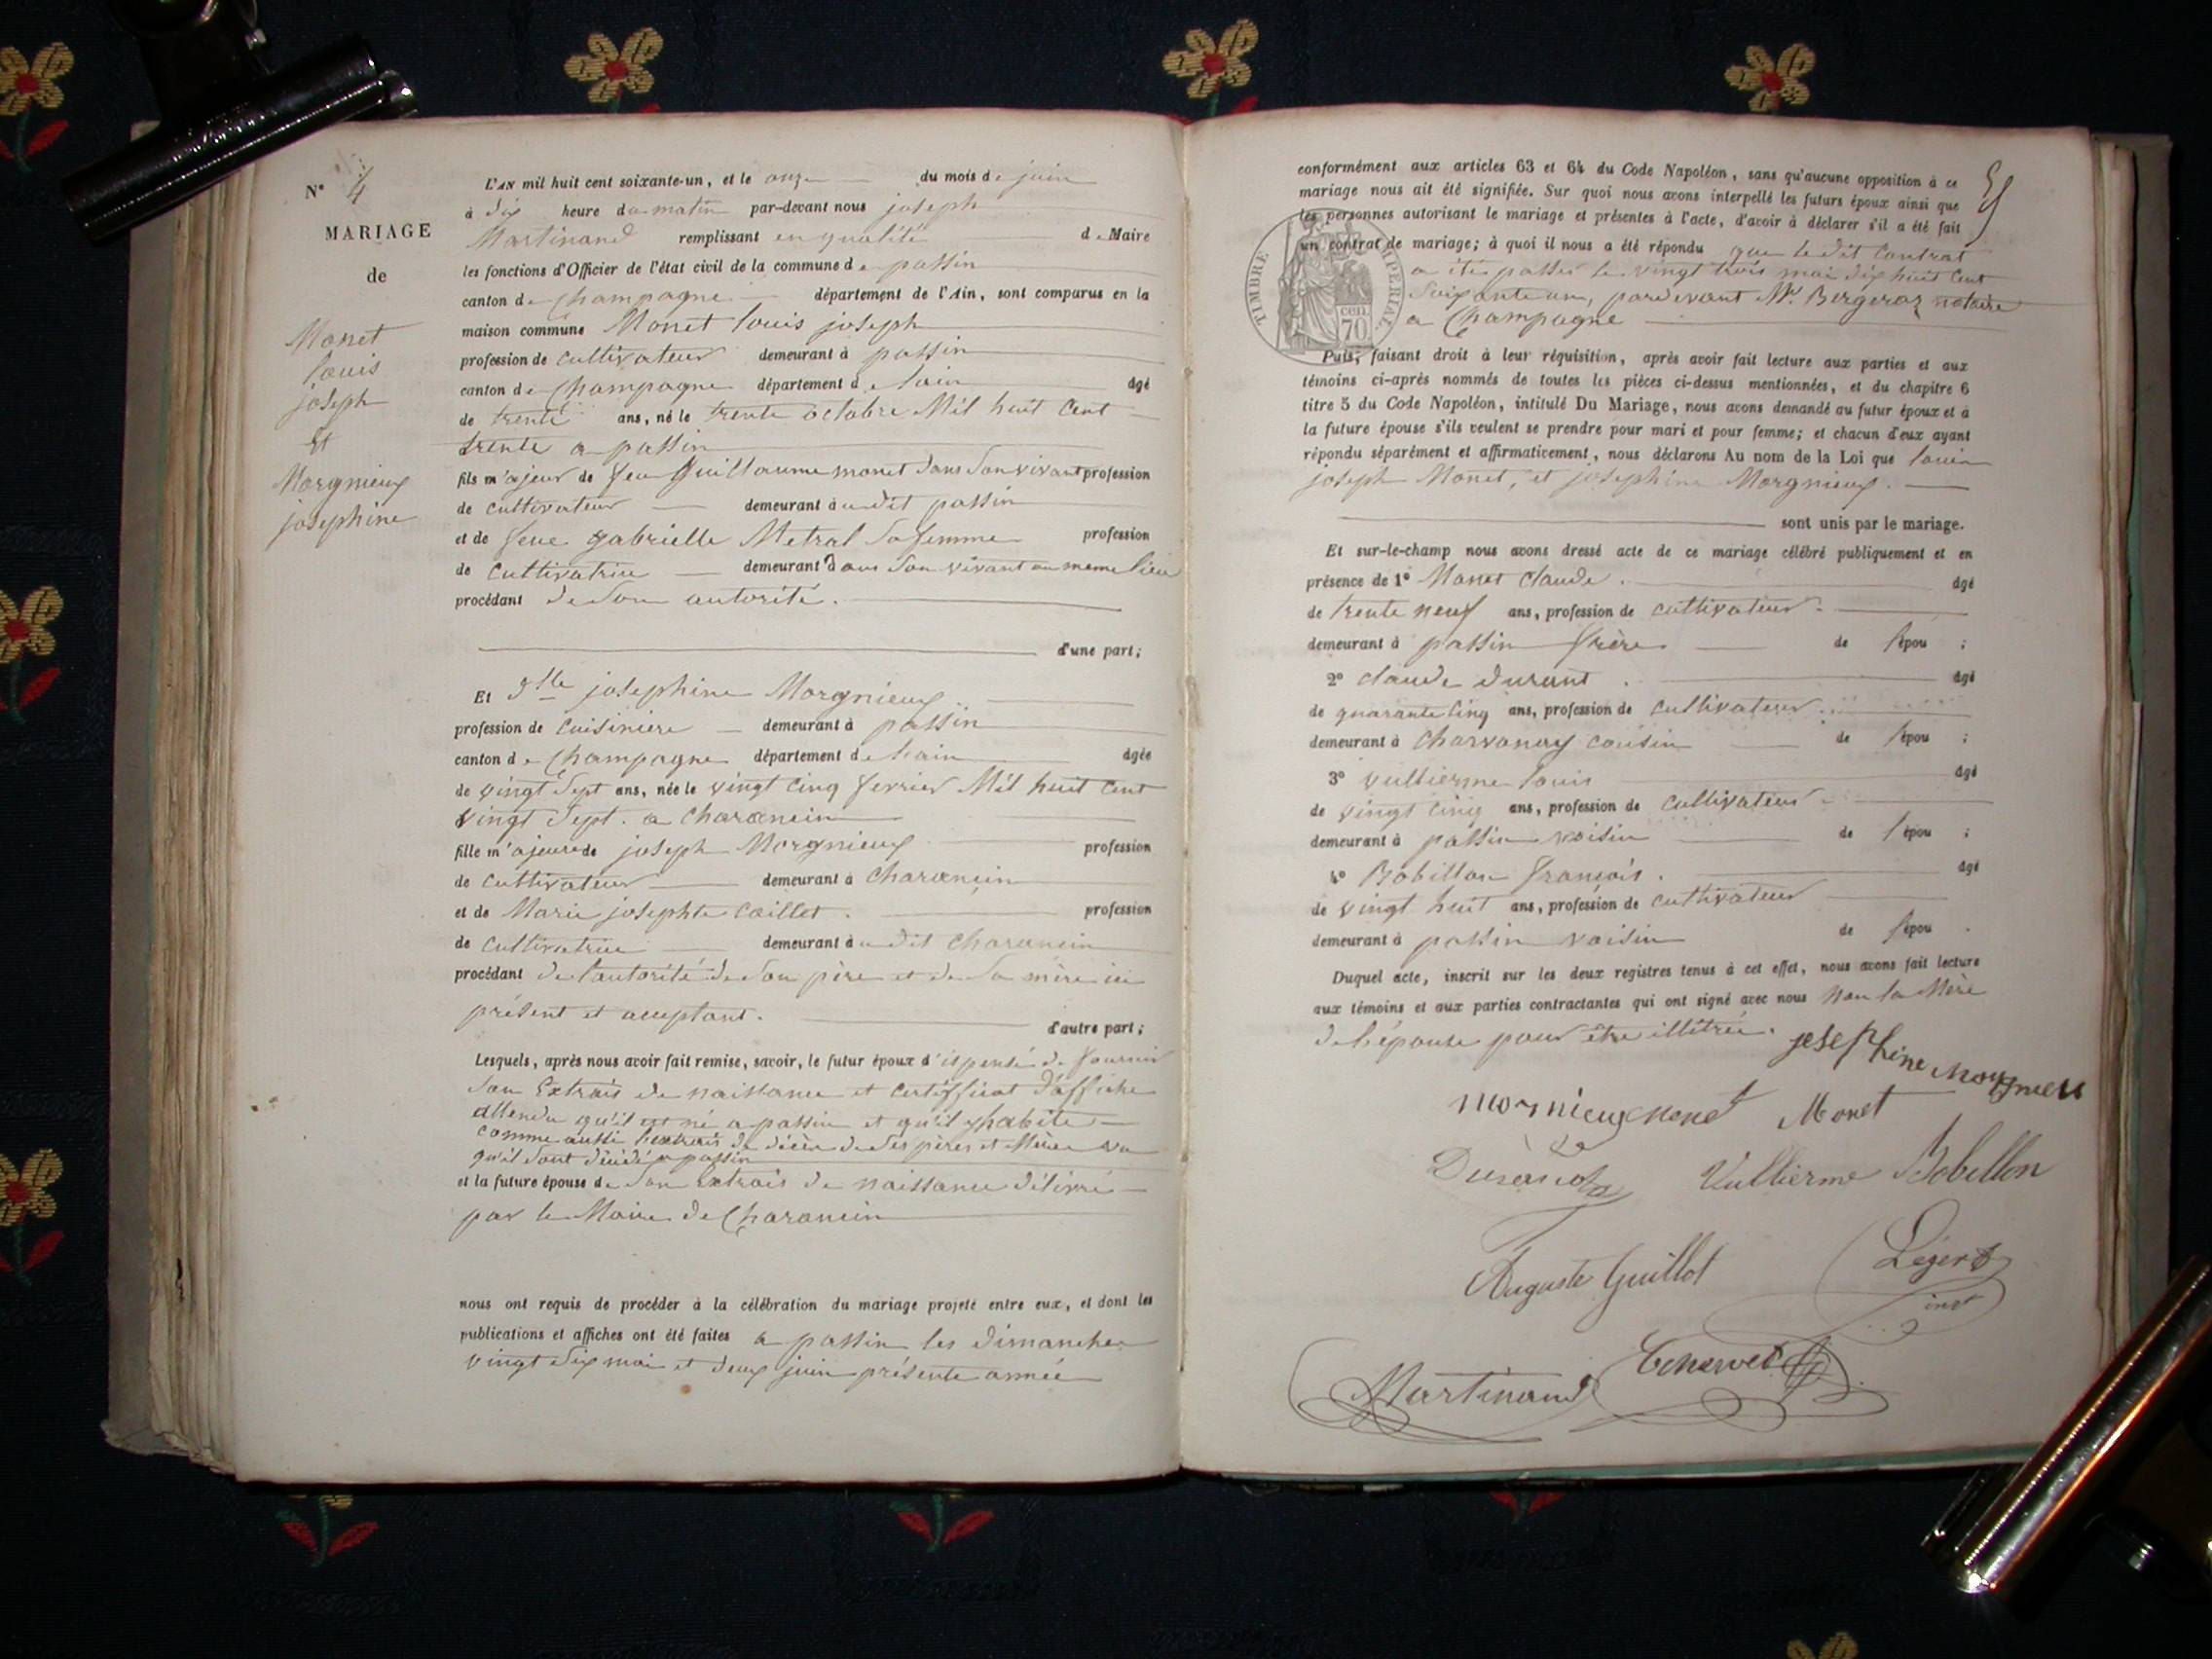 N° 4
MARIAGE
de
Monet
louis
joseph
Et
Morgnieux
josephine
L'AN mil huit cent soixante-un, et le onze du mois de juin
à dix heure du matin par-devant nous joseph
Martinand remplissant en qualité de Maire
les fonctions d'Officier de l'état civil de la commune de passin
canton de Champagne département de l'Ain, sont comparus en la
maison commune Monet louis joseph
profession de cultivateur demeurant à passin
canton de Champagne département de lain âgé
de trente ans, né le trente octobre Mil huit cent
trente a passin
fils majeur de feu Guillaume monet dans son vivant profession
de cultivateur demeurant à udit passin
et de feue gabrielle Metral sa femme profession
de cultivatrice demeurant dans son vivant au meme lieu
procédant de son autorité.
d'une part;
Et Dlle josephine Morgnieux
profession de cuisiniere demeurant à passin
canton de Champagne département de lain âgée
de vingt sept ans, née le vingt cinq fevrier Mil huit cent
vingt sept. a charancin
fille majeure de joseph Morgnieux profession
de cultivateur demeurant à charancin
et de Marie josephte caillet. profession
de cultivatrice demeurant à udit charancin
procédant de l'autorité de son père et de sa mère ici
présent et aceptant.
d'autre part;
Lesquels, après nous avoir fait remise, savoir, le futur époux dispensé de fournir
son Extrais de naissance et certifficat d'affiche
attendu qu'il est né a passin et qu'il y habite
comme aussi l'extrais de décès de ses pères et Mère vu
qu'il sont décidé a passin
et la future épouse de son Extrais de naissance délivré
par le Maire de Charancin
nous ont requis de procéder à la célébration du mariage projeté entre eux, et dont les
publications et affiches ont été faites a passin les dimanche
vingt six mai et deux juin présente année
conformément aux articles 63 et 64 du Code Napoléon, sans qu'aucune opposition à ce
mariage nous ait été signifiée. Sur quoi nous avons interpellé les futurs époux ainsi que
les personnes autorisant le mariage et présentes à l'acte, d'avoir à déclarer s'il a été fait
un contrat de mariage; à quoi il nous a été répondu que le dit contrat
a été passer le vingt trois mai dix huit cent
soixante un, pardevant Mr. Bergeraz notaire
a Champagne
TIMBRE IMPERIAL
cen.
70
Puis, faisant droit à leur réquisition, après avoir fait lecture aux parties et aux
témoins ci-après nommés de toutes les pièces ci-dessus mentionnées, et du chapitre 6
titre 5 du Code Napoléon, intitulé Du Mariage, nous avons demandé au futur époux et à
la future épouse s'ils veulent se prendre pour mari et pour femme; et chacun d'eux ayant
répondu séparément et affirmativement, nous déclarons Au nom de la Loi que louis
joseph Monet, et josephine Morgnieux.
sont unis par le mariage.
Et sur-le-champ nous avons dressé acte de ce mariage célébré publiquement et en
présence de 1° Monet claude. âgé
de trente neuf ans, profession de cultivateur
demeurant à passin frère de l'épou ;
2° claude durant. âgé
de quarante cinq ans, profession de cultivateur
demeurant à charvonay cousin de l'épou ;
3° vullierme louis âgé
de vingt cinq ans, profession de cultivateur
demeurant à passin voisin de l'épou ;
4° Bobillon françois. âgé
de vingt huit ans, profession de cultivateur
demeurant à passin voisin de l'épou .
Duquel acte, inscrit sur les deux registres tenus à cet effet, nous avons fait lecture
aux témoins et aux parties contractantes qui ont signé avec nous Non la Mère
de l'épouse pour être illétrée.
josephine Morgnieux
mornieux monet Monet
Vullierme Bobillon
Auguste Guillot
Léger
inst
Martinand